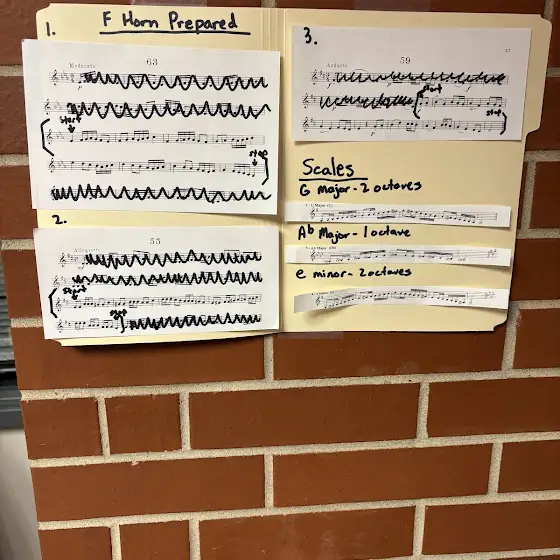 1.
F Horn Prepared
Moderato
63
p
start
stop
2.
55
Allegretto
start
stop
3.
59
Andante
p
f
start
stop
p
Scales
G major - 2 octaves
Ab Major - 1 octave
e minor - 2 octaves